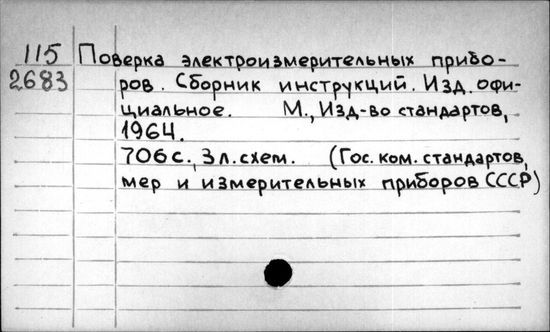 115 Поверка электроизмерительных прибо-
2683 ров. Сборник инструкций. Изд. офи-
циальное. М., Изд-во стандартов,
1964.
706 с., 3 л. схем. (Гос. ком. стандартов,
мер и измерительных приборов СССР)